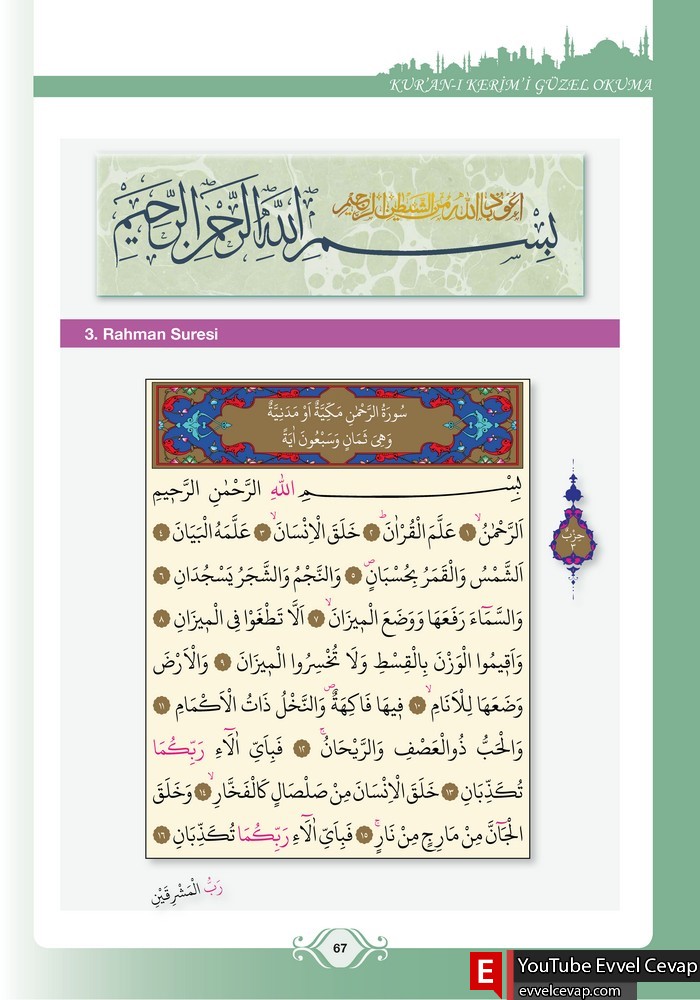 KUR'AN-I KERİM'İ GÜZEL OKUMA
اعوذ بالله من الشيطان الرجيم
بِسْمِ اللّٰهِ الرَّحْمٰنِ الرَّحِيمِ
3. Rahman Suresi
سُورَةُ الرَّحْمٰنِ مَكِّيَّةٌ اَوْ مَدَنِيَّةٌ
وَهِيَ ثَمَانٍ وَسَبْعُونَ اٰيَةً
بِسْمِ اللّٰهِ الرَّحْمٰنِ الرَّحٖيمِ
اَلرَّحْمٰنُۙ ﴿١﴾ عَلَّمَ الْقُرْاٰنَۜ ﴿٢﴾ خَلَقَ الْاِنْسَانَۙ ﴿٣﴾ عَلَّمَهُ الْبَيَانَ ﴿٤﴾
اَلشَّمْسُ وَالْقَمَرُ بِحُسْبَانٍۖ ﴿٥﴾ وَالنَّجْمُ وَالشَّجَرُ يَسْجُدَانِ ﴿٦﴾
وَالسَّمَٓاءَ رَفَعَهَا وَوَضَعَ الْمٖيزَانَۙ ﴿٧﴾ اَلَّا تَطْغَوْا فِي الْمٖيزَانِ ﴿٨﴾
وَاَقٖيمُوا الْوَزْنَ بِالْقِسْطِ وَلَا تُخْسِرُوا الْمٖيزَانَ ﴿٩﴾ وَالْاَرْضَ
وَضَعَهَا لِلْاَنَامِۙ ﴿١٠﴾ فٖيهَا فَاكِهَةٌۖ وَالنَّخْلُ ذَاتُ الْاَكْمَامِ ﴿١١﴾
وَالْحَبُّ ذُوالْعَصْفِ وَالرَّيْحَانُۚ ﴿١٢﴾ فَبِاَيِّ اٰلَٓاءِ رَبِّكُمَا
تُكَذِّبَانِ ﴿١٣﴾ خَلَقَ الْاِنْسَانَ مِنْ صَلْصَالٍ كَالْفَخَّارِۙ ﴿١٤﴾ وَخَلَقَ
الْجَٓانَّ مِنْ مَارِجٍ مِنْ نَارٍۚ ﴿١٥﴾ فَبِاَيِّ اٰلَٓاءِ رَبِّكُمَا تُكَذِّبَانِ ﴿١٦﴾
حِزْبْ
٣
رَبُّ الْمَشْرِقَيْنِ
67
E YouTube Evvel Cevap
evvelcevap.com